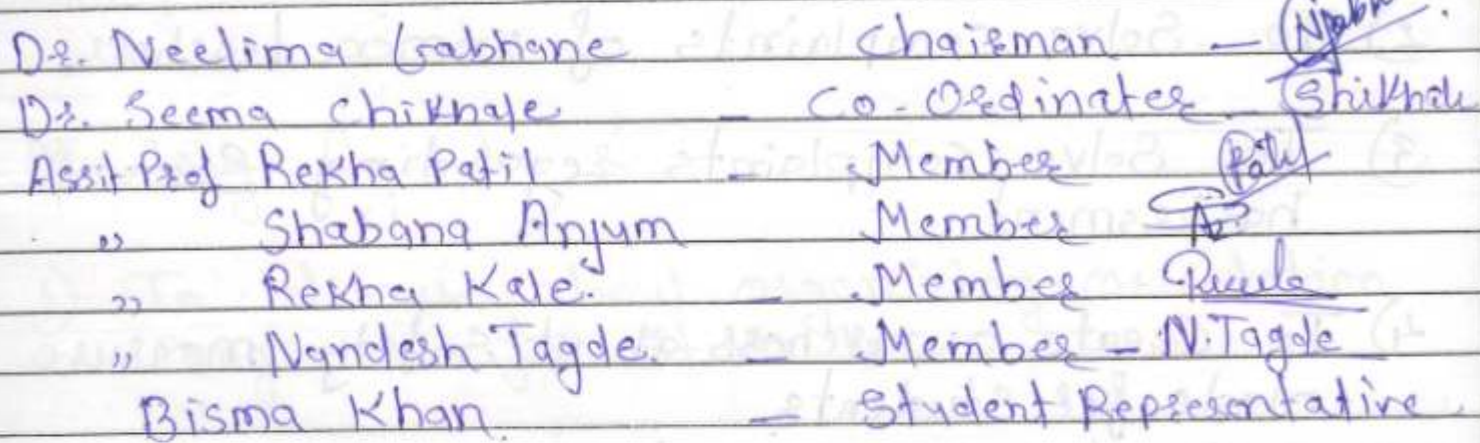 Dr. Neelima Gabhane Chairman -
Dr. Seema Chikhale - Co-Ordinater Shikhale
Assit Prof Rekha Patil - Member Patil
,, Shabana Anjum Member
,, Rekha Kale. - Member
,, Nandesh Tagde. - Member - N.Tagde
Bisma Khan. - Student Representative